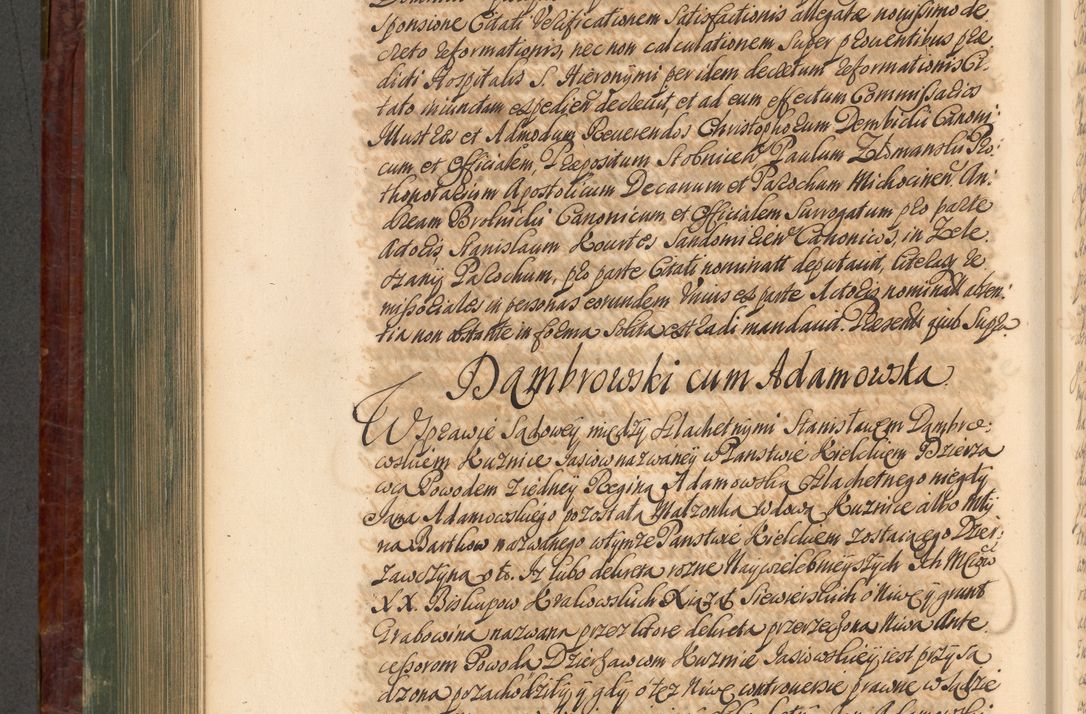 sponsione Citati Verificationem Satisfactionis allegatæ novissimo de
creto reformationis, nec non calculationem super proventibus præ
dicti Hospitalis S. Hieronymi per idem decretum reformationis Ci-
tato iniunctum expedien decrevit, et ad eum effectum Commissarios
Illustres et Admodum Reverendos Christophorum Dembicki Canoni-
cum et Officialem, Præpositum Stobnicen Paulum Pro:
thonotarium Apostolicum Decanum et Parochum Michocinen, An:
dream Canonicum et Officialem Surrogatum pro parte
Actoris Stanislaum Sandomirien Canonicos, in Zele
Parochum, pro parte Citati nominatt deputavit, literasq re
missoriales in personas eorundem unius ex parte Actoris nominatt absen:
tia non obstante in forma solita extradi mandavit. Præsentt quib Supr
Dąmbrowski cum Adamowska
W Sprawie Sądowey między szlachetnymi Stanisławem Dąmbro:
wskiem Kuznice Jasiow nazwaney w Panstwie Kielckiem Dzierza
wcą Powodem z iedney Reginą Adamowską szlachetnego niegdy
Jana Adamowskiego pozostałą Małzonką wdową Kuznice albo Mły
na Bartkow nazwanego wtymze Panstwie Kielckiem zostaiącego Dzer:
zawczyną o to. Iz lubo dekreta rozne Naywielebnieyszych Ich Mciow
X X. Biskupow Krakowskich Xiąząt Siewierskich o Niwę y grunt
Grabowina nazwaną przez ktore dekreta przerzeczona Niwa Ante
cessorom Powoda Dzierzawcom Kuznice Jasiowskiey iest przysą
dzona pozachodziły, y gdy o tez Niwę controuersie prawne w sądzie